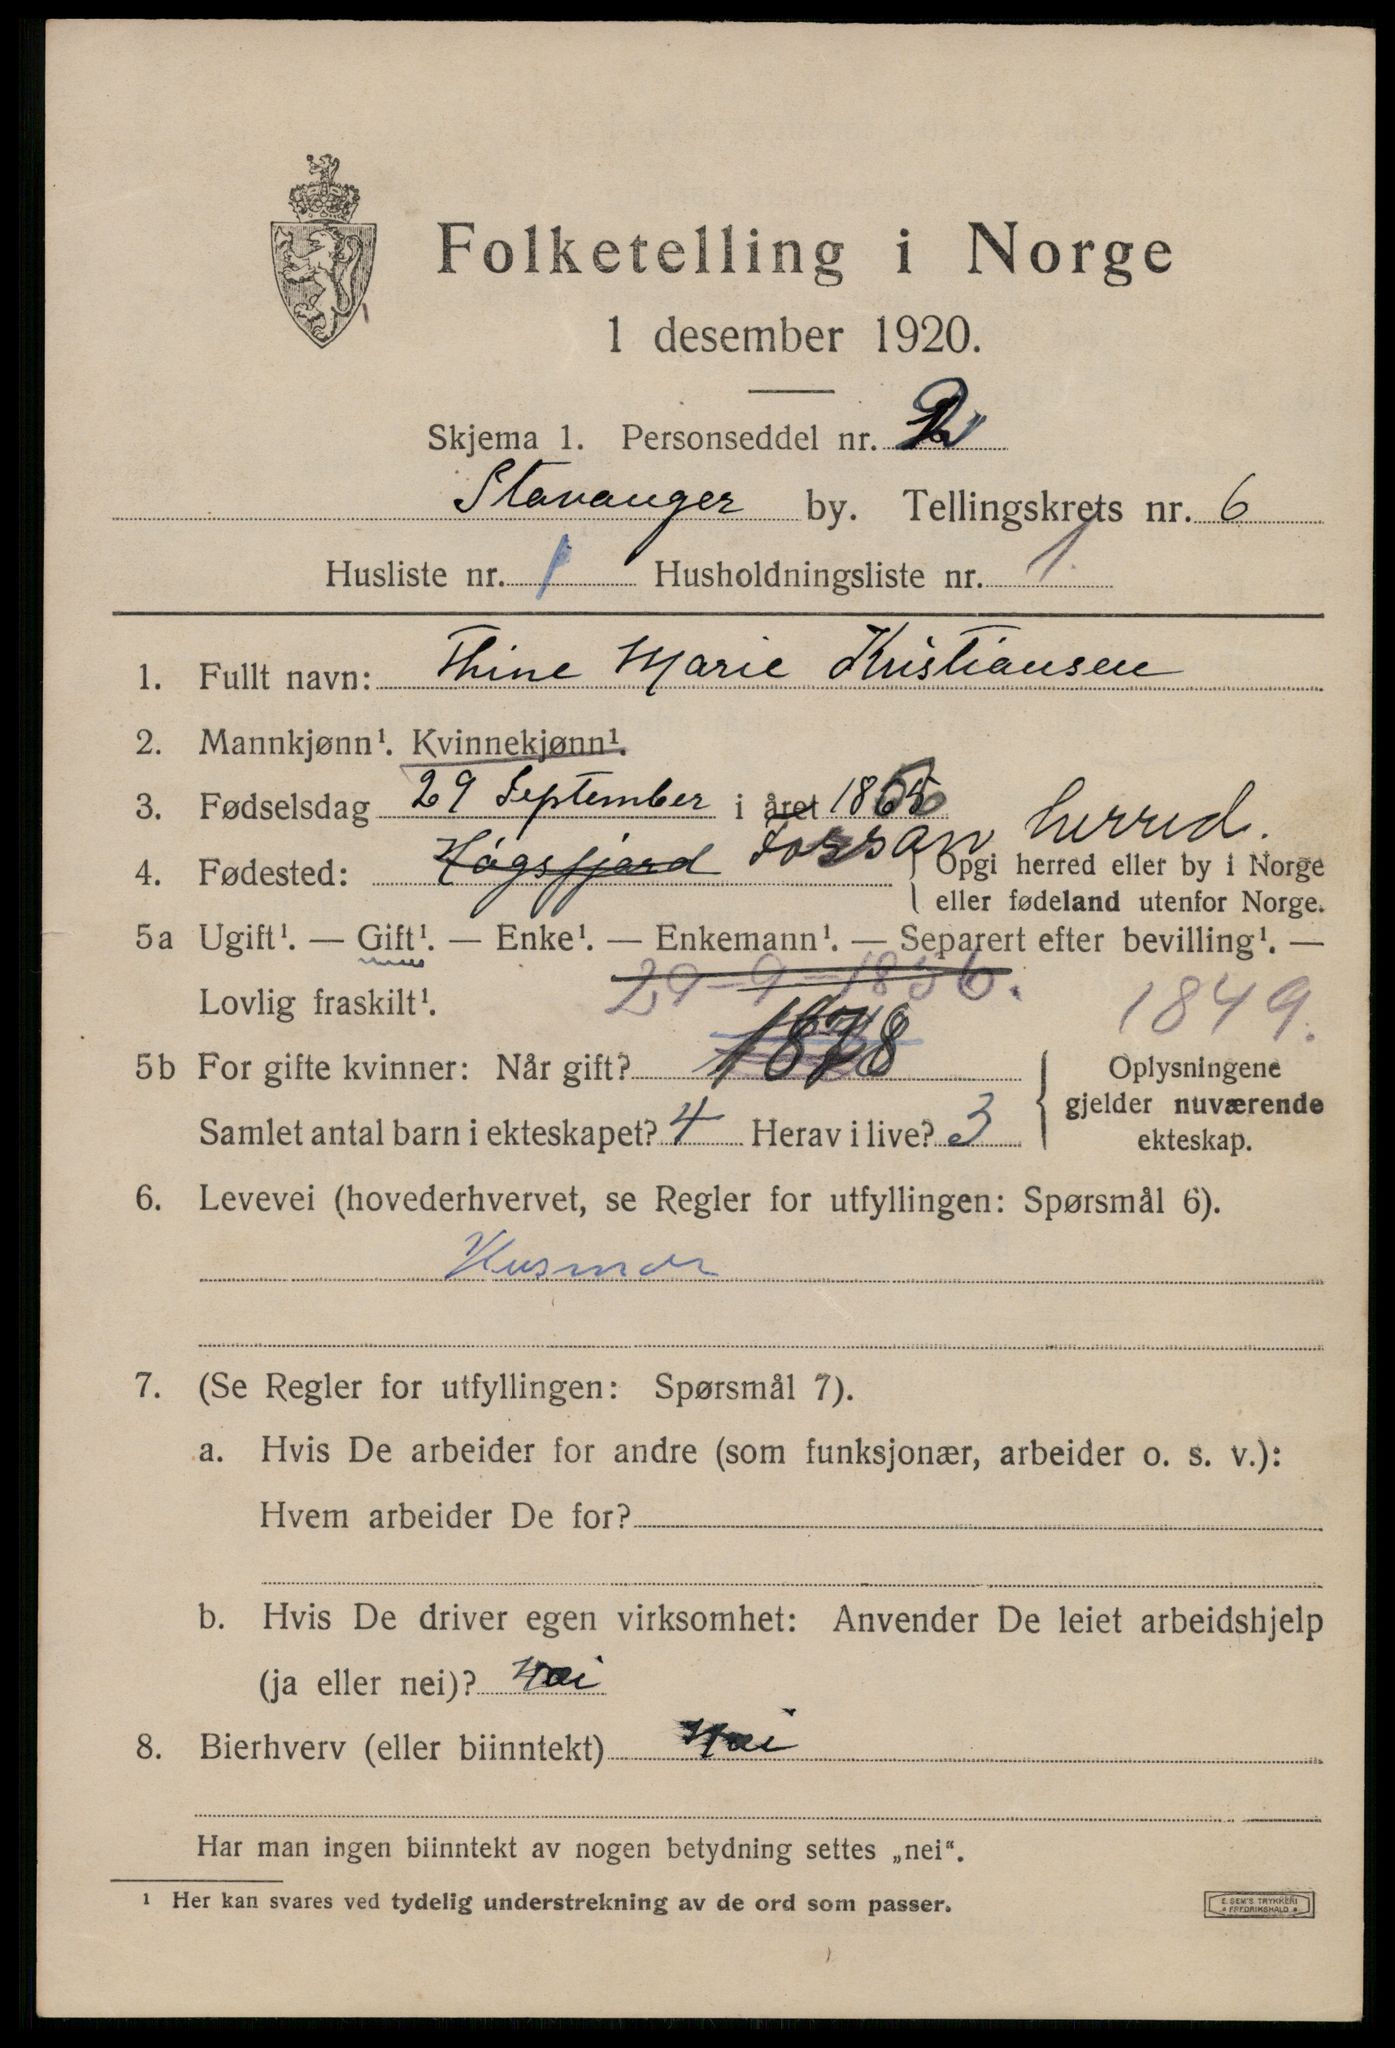 Folketelling i Norge
1 desember 1920.
Skjema 1. Personseddel nr. 2
Stavanger by. Tellingskrets nr. 6
Husliste nr. 1 Husholdningsliste nr. 1.
1. Fullt navn: Thine Marie Kristiansen
2. Mannkjønn¹. Kvinnekjønn¹.
3. Fødselsdag 29 September i året 18
4. Fødested: Høgsfjord Fossan herred.
Opgi herred eller by i Norge
eller fødeland utenfor Norge.
5a Ugift¹. — Gift¹. — Enke¹. — Enkemann¹. — Separert efter bevilling¹. —
29-9-1856.
Lovlig fraskilt¹. 1849.
5b For gifte kvinner: Når gift? 1878
Oplysningene
gjelder nuværende
ekteskap.
Samlet antal barn i ekteskapet? 4 Herav i live? 3
6. Levevei (hovederhvervet, se Regler for utfyllingen: Spørsmål 6).
Husmor
7. (Se Regler for utfyllingen: Spørsmål 7).
a. Hvis De arbeider for andre (som funksjonær, arbeider o. s. v.):
Hvem arbeider De for?
b. Hvis De driver egen virksomhet: Anvender De leiet arbeidshjelp
(ja eller nei)? Nei
8. Bierhverv (eller biinntekt) Nei
Har man ingen biinntekt av nogen betydning settes „nei“.
¹ Her kan svares ved tydelig understrekning av de ord som passer.
E. SEM'S TRYKKERI
FREDRIKSHALD